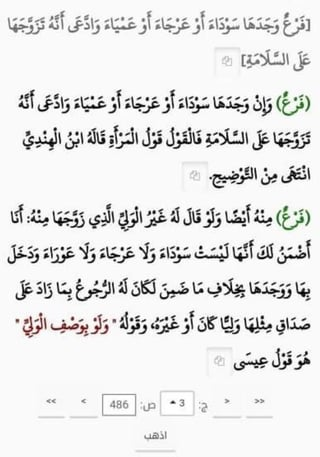 [فَرْعٌ وَجَدَهَا سَوْدَاءَ أَوْ عَرْجَاءَ أَوْ عَمْيَاءَ وَادَّعَى أَنَّهُ تَزَوَّجَهَا
عَلَى السَّلَامَةِ]
(فَرْعٌ) وَإِنْ وَجَدَهَا سَوْدَاءَ أَوْ عَرْجَاءَ أَوْ عَمْيَاءَ وَادَّعَى أَنَّهُ
تَزَوَّجَهَا عَلَى السَّلَامَةِ فَالْقَوْلُ قَوْلُ الْمَرْأَةِ قَالَهُ ابْنُ الْهِنْدِيِّ
انْتَهَى مِنْ التَّوْضِيحِ.
(فَرْعٌ) مِنْهُ أَيْضًا وَلَوْ قَالَ لَهُ غَيْرُ الْوَلِيِّ الَّذِي زَوَّجَهَا مِنْهُ: أَنَا
أَضْمَنُ لَكَ أَنَّهَا لَيْسَتْ سَوْدَاءَ وَلَا عَرْجَاءَ وَلَا عَوْرَاءَ وَدَخَلَ
بِهَا وَوَجَدَهَا بِخِلَافِ مَا ضَمِنَ لَكَانَ لَهُ الرُّجُوعُ بِمَا زَادَ عَلَى
صَدَاقِ مِثْلِهَا وَلِيًّا كَانَ أَوْ غَيْرَهُ، وَقَوْلُهُ " وَلَوْ بِوَصْفِ الْوَلِيِّ "
هُوَ قَوْلُ عِيسَى
<< < 486 ص: 3 ج: > >>
اذهب